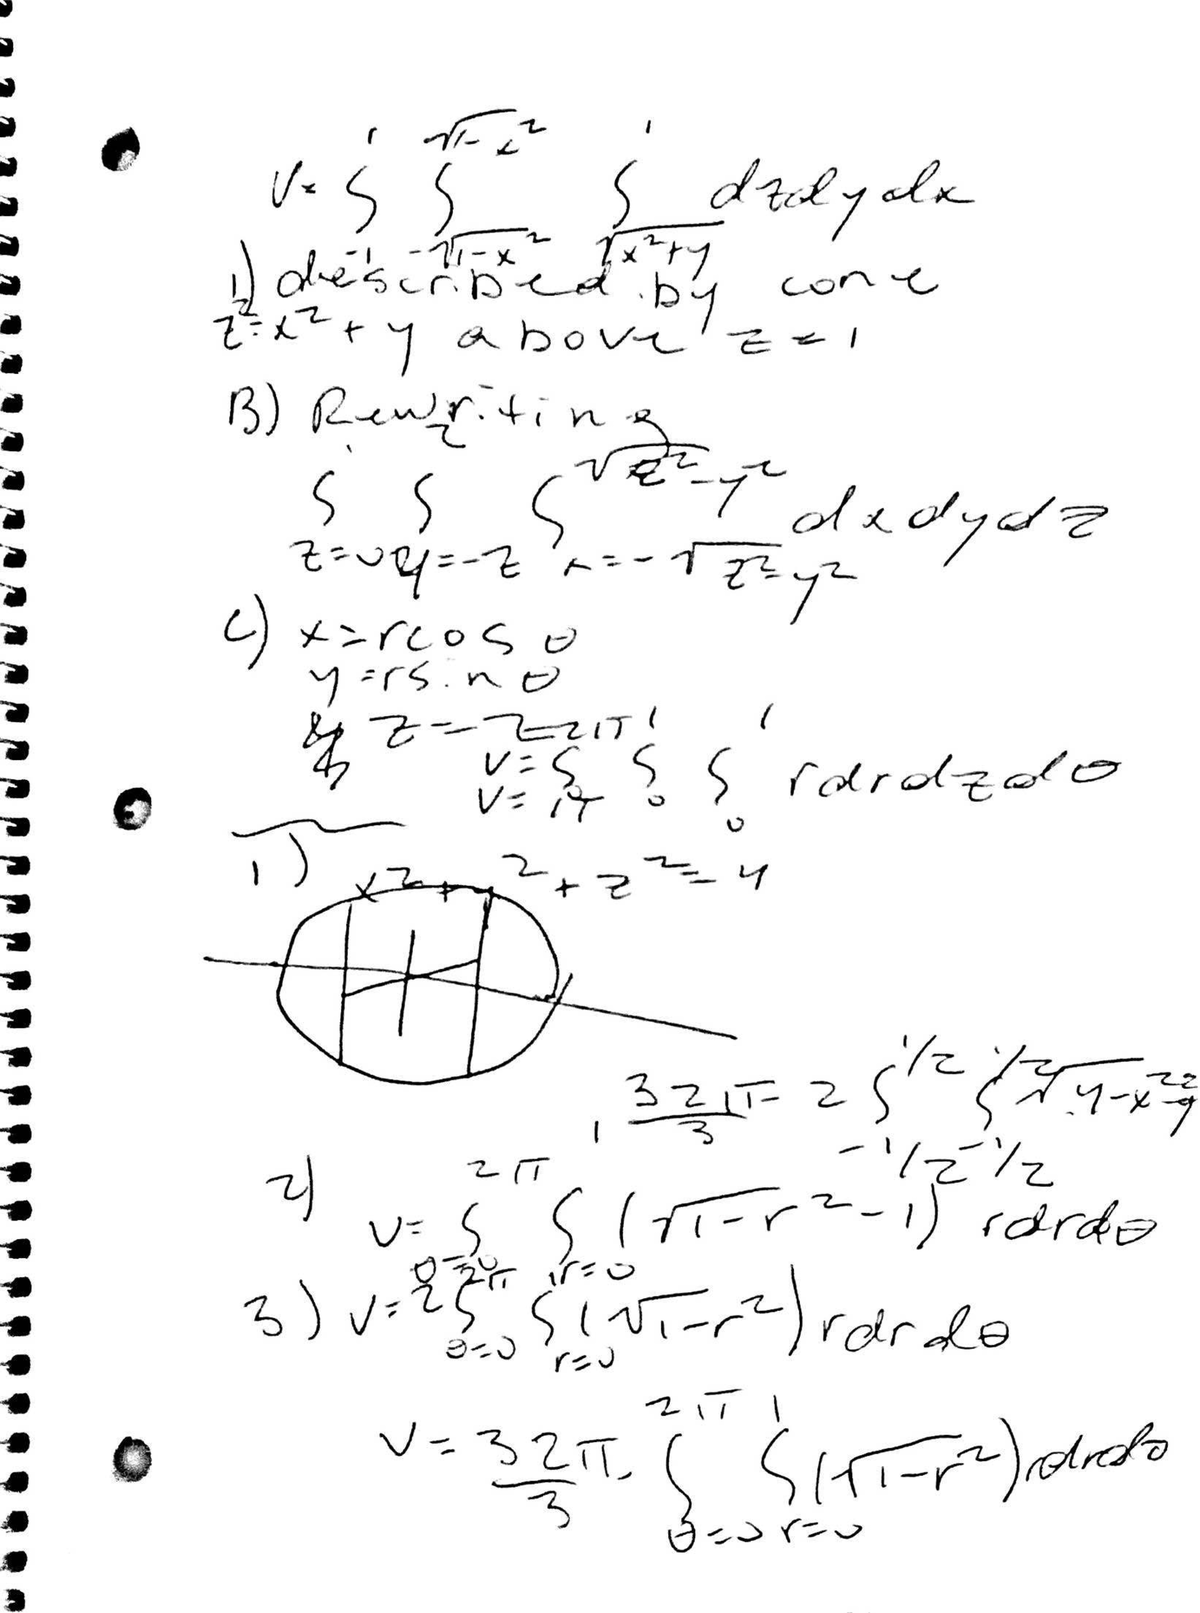 V = ∫_{-1}^{1} ∫_{-√1-x²}^{√1-x²} ∫_{√x²+y}^{1} dzdydx
1) described by cone
z²=x²+y above z=1
B) Rewriting
∫_{z=0}^{1} ∫_{y=-z}^{z} ∫_{x=-√z²-y²}^{√z²-y²} dxdydz
C) x=rcosθ
y=rsinθ
z=z
V=∫ ∫_{0}^{1} ∫_{0}^{1} rdrdzdθ
V=π
1) x²+y²+z²=4
32π/3 = 2 ∫_{-1/2}^{1/2} ∫_{-1/2}^{1/2} √4-x²-y²
2) V=∫_{θ=0}^{2π} ∫_{r=0}^{1} (√1-r²-1) rdrdθ
3) V=2∫_{θ=0}^{2π} ∫_{r=0} (√1-r²) rdrdθ
V=32π/3 - ∫_{θ=0}^{2π} ∫_{r=0}^{1} (√1-r²) rdrdθ